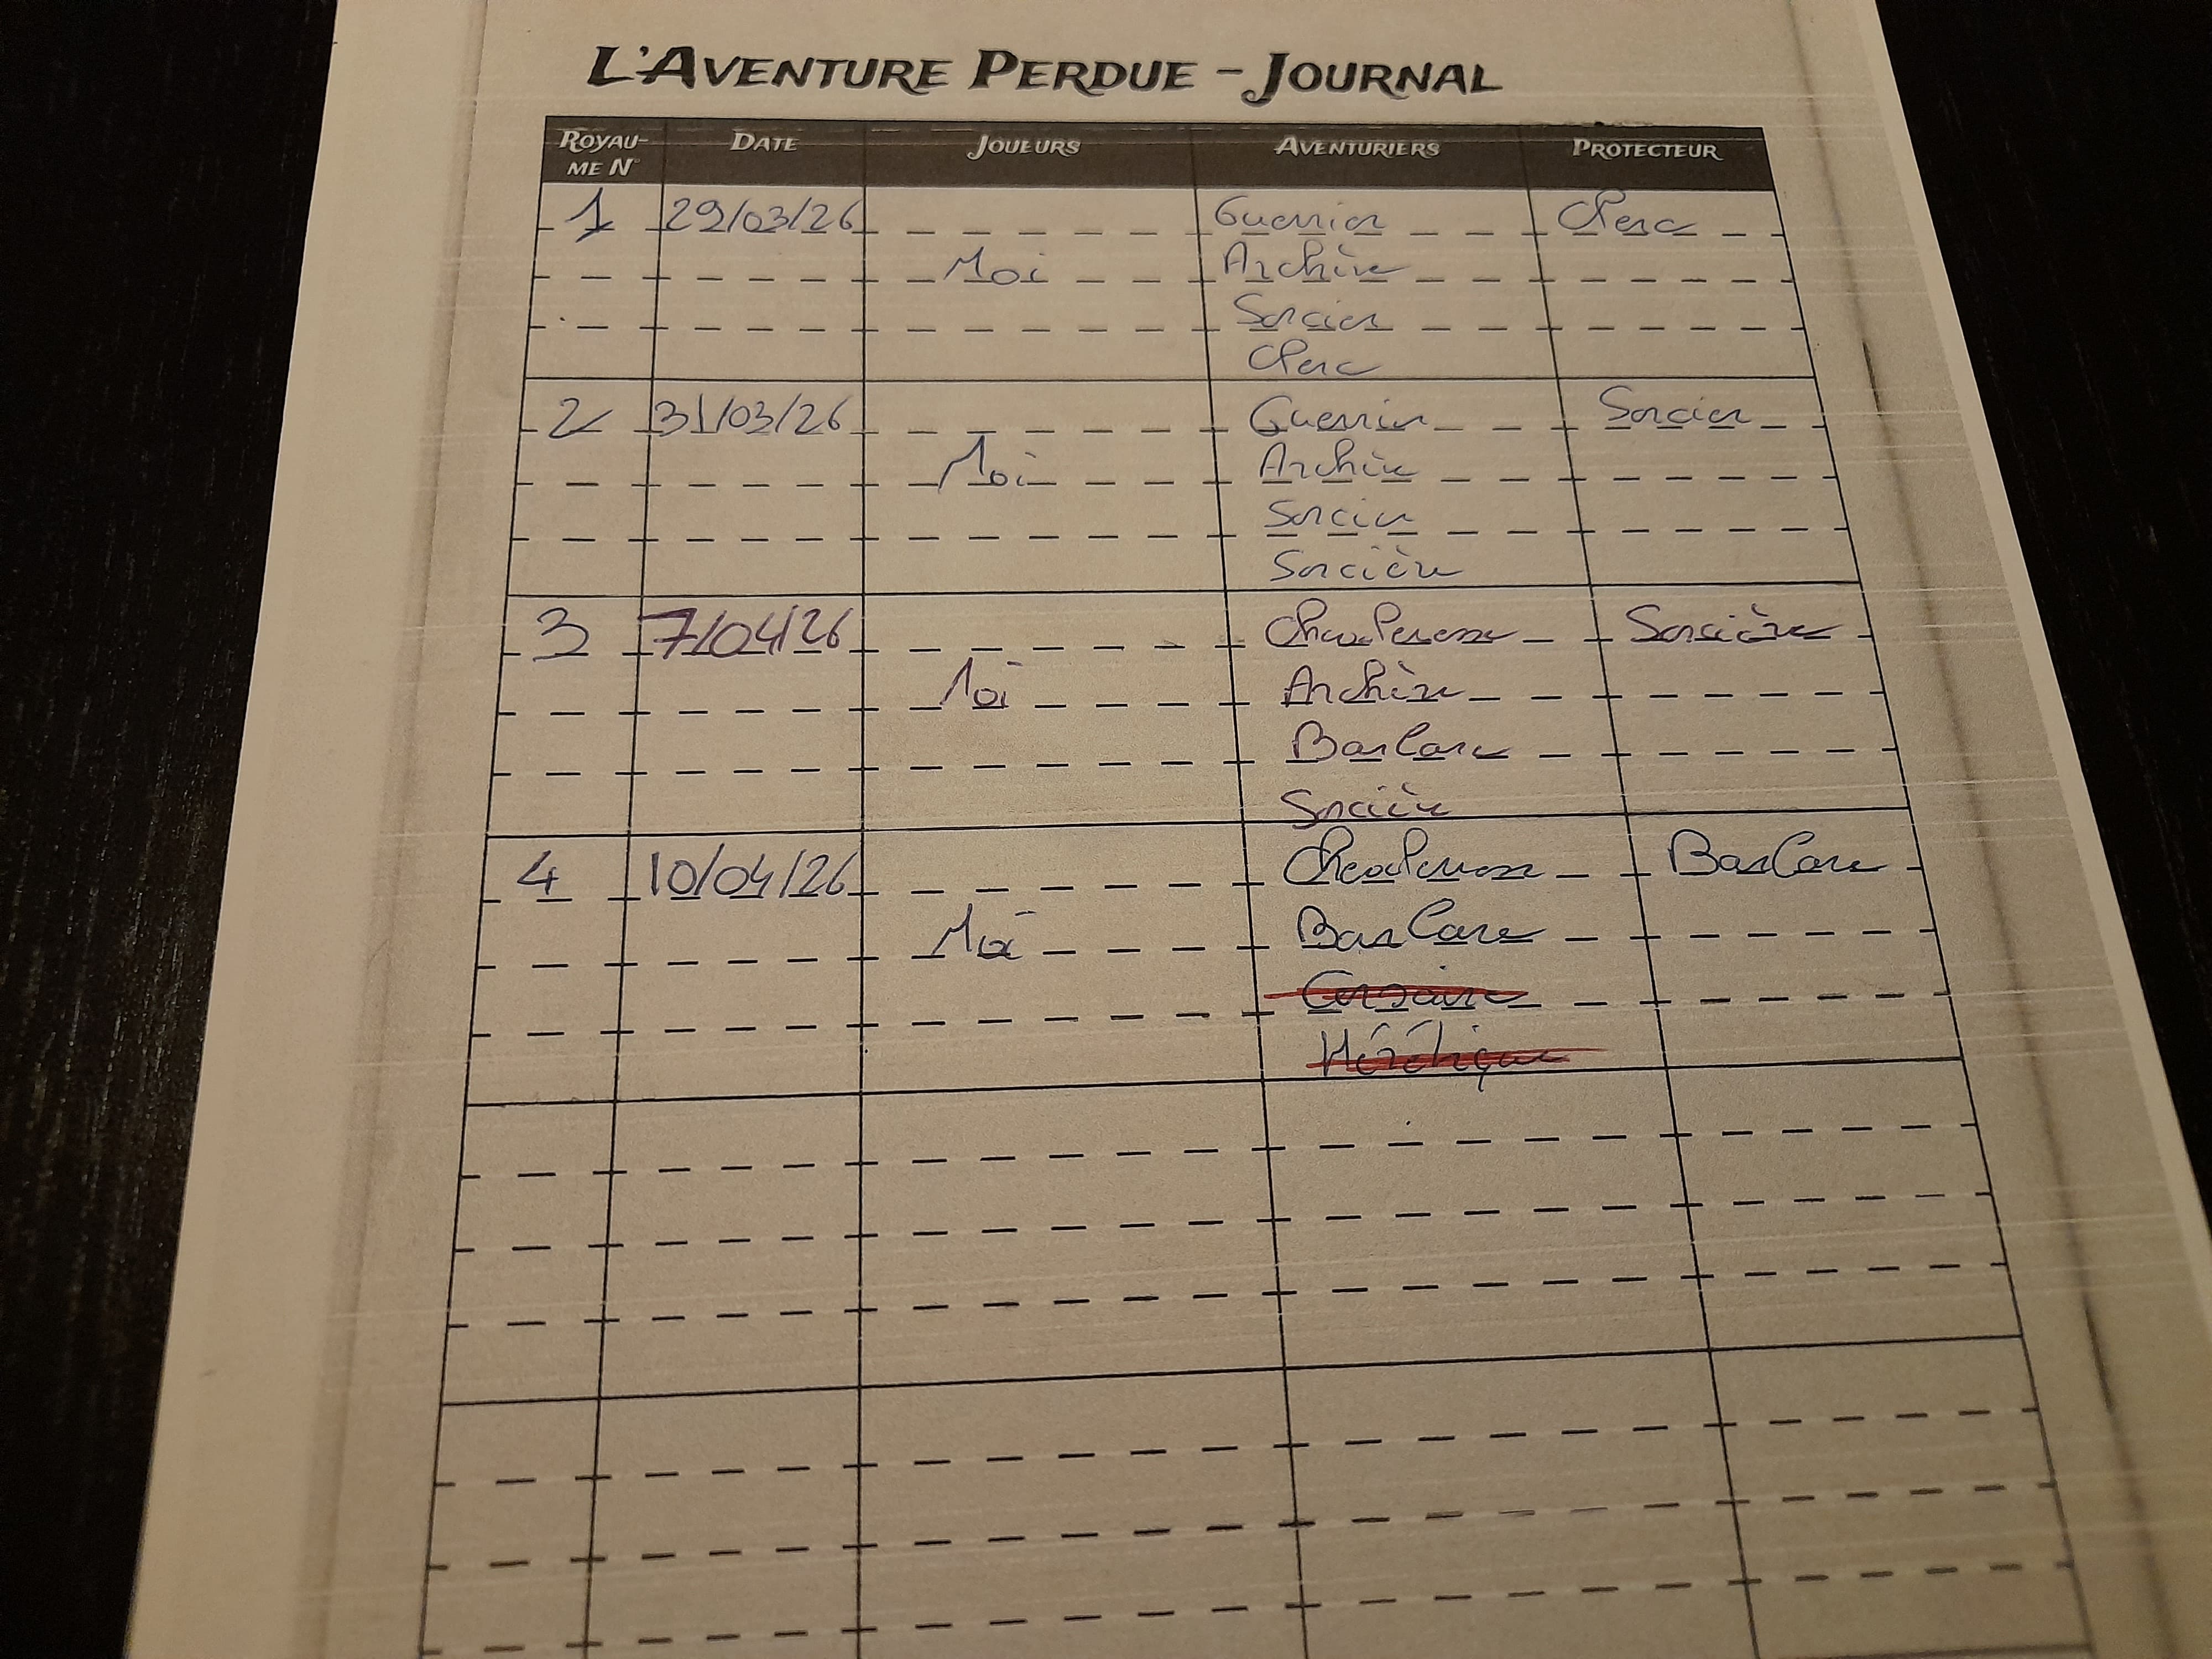 L'AVENTURE PERDUE – JOURNAL
ROYAU-ME N° DATE JOUEURS AVENTURIERS PROTECTEUR
1 29/03/26 Guerrier Clerc
Moi Archère
Sorcier
Clerc
2 31/03/26 Guerrier Sorcier
Moi Archère
Sorcier
Sorcière
3 7/04/26 Chevaleresse Sorcière
Moi Archère
Barbare
Sorcière
4 10/04/26 Chevaleresse Barbare
Moi Barbare
Corsaire
Hérétique